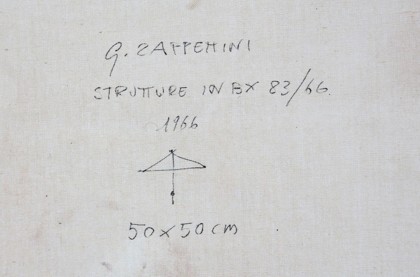 G. ZAPPETTINI
STRUTTURE IN BX 83/66
1966
50x50 cm